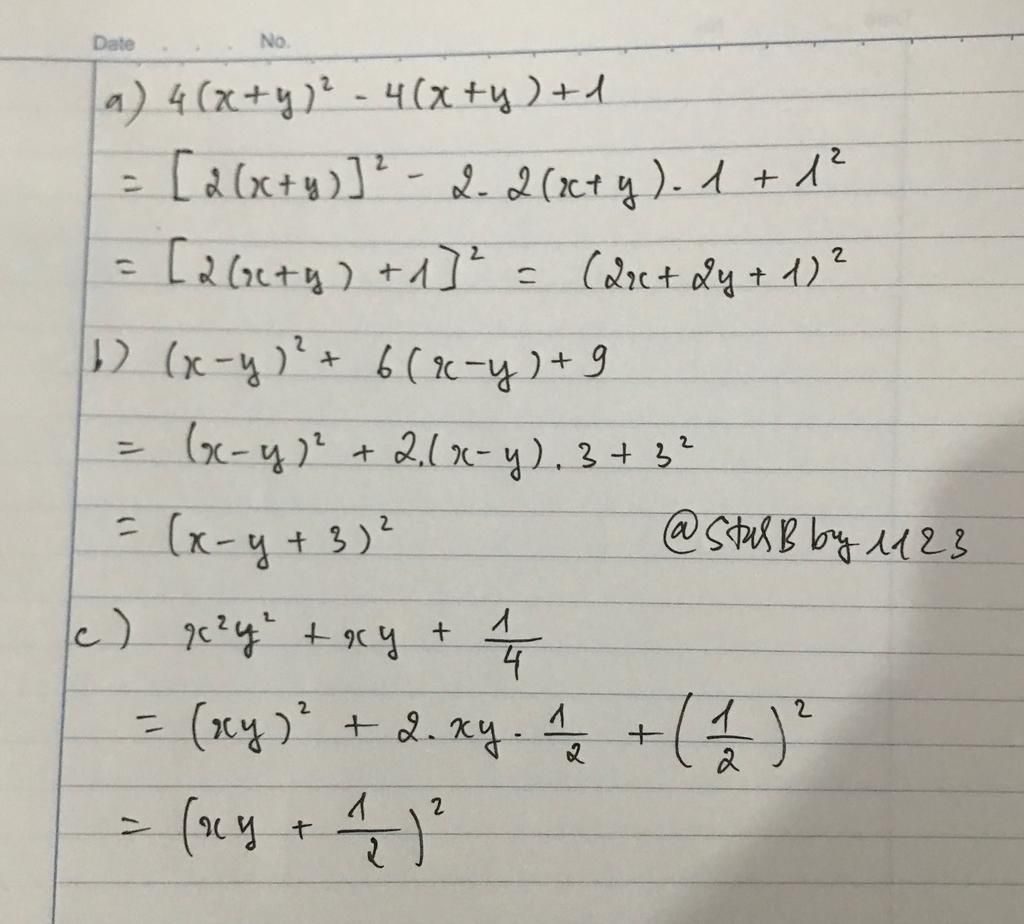 Date . . . No.
a) 4(x+y)² - 4(x+y)+1
= [2(x+y)]² - 2. 2(x+y). 1 + 1²
= [2(x+y) +1]² = (2x+2y+1)²
b) (x-y)² + 6(x-y)+9
= (x-y)² + 2.(x-y). 3 + 3²
= (x-y+3)² @StarBby1123
c) x²y² + xy + 1/4
= (xy)² + 2. xy. 1/2 + (1/2)²
= (xy + 1/2)²